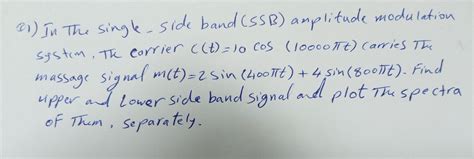 Q1) In The single-side band (SSB) amplitude modulation
system, The carrier C(t)=10 cos (10000πt) carries The
massage signal m(t)=2 sin (400πt) + 4 sin(800πt). Find
upper and Lower side band signal and plot The spectra
of Them, separately.